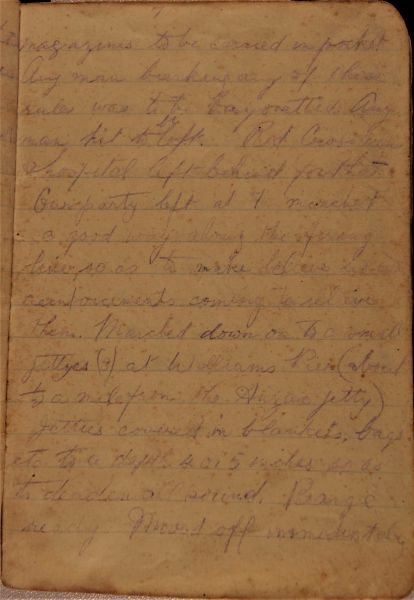 magazines to be carried in pocket
Any man breaking any of these
rules was to be bayonetted. Any
man hit to be left. Red Cross men
& hospital left behind for that
Our party left at 7. marched
a good way along the firing
line so as to make believe
coming to relieve
them. Marched down on to a small
jettyes (3) at Williams Pier (about
½ a mile from the Anzac jetty)
Jetties covered in blankets, bags
etc to a depth 4 or 5 inches so as
to deaden all sound. Barge
ready Moved off immediately